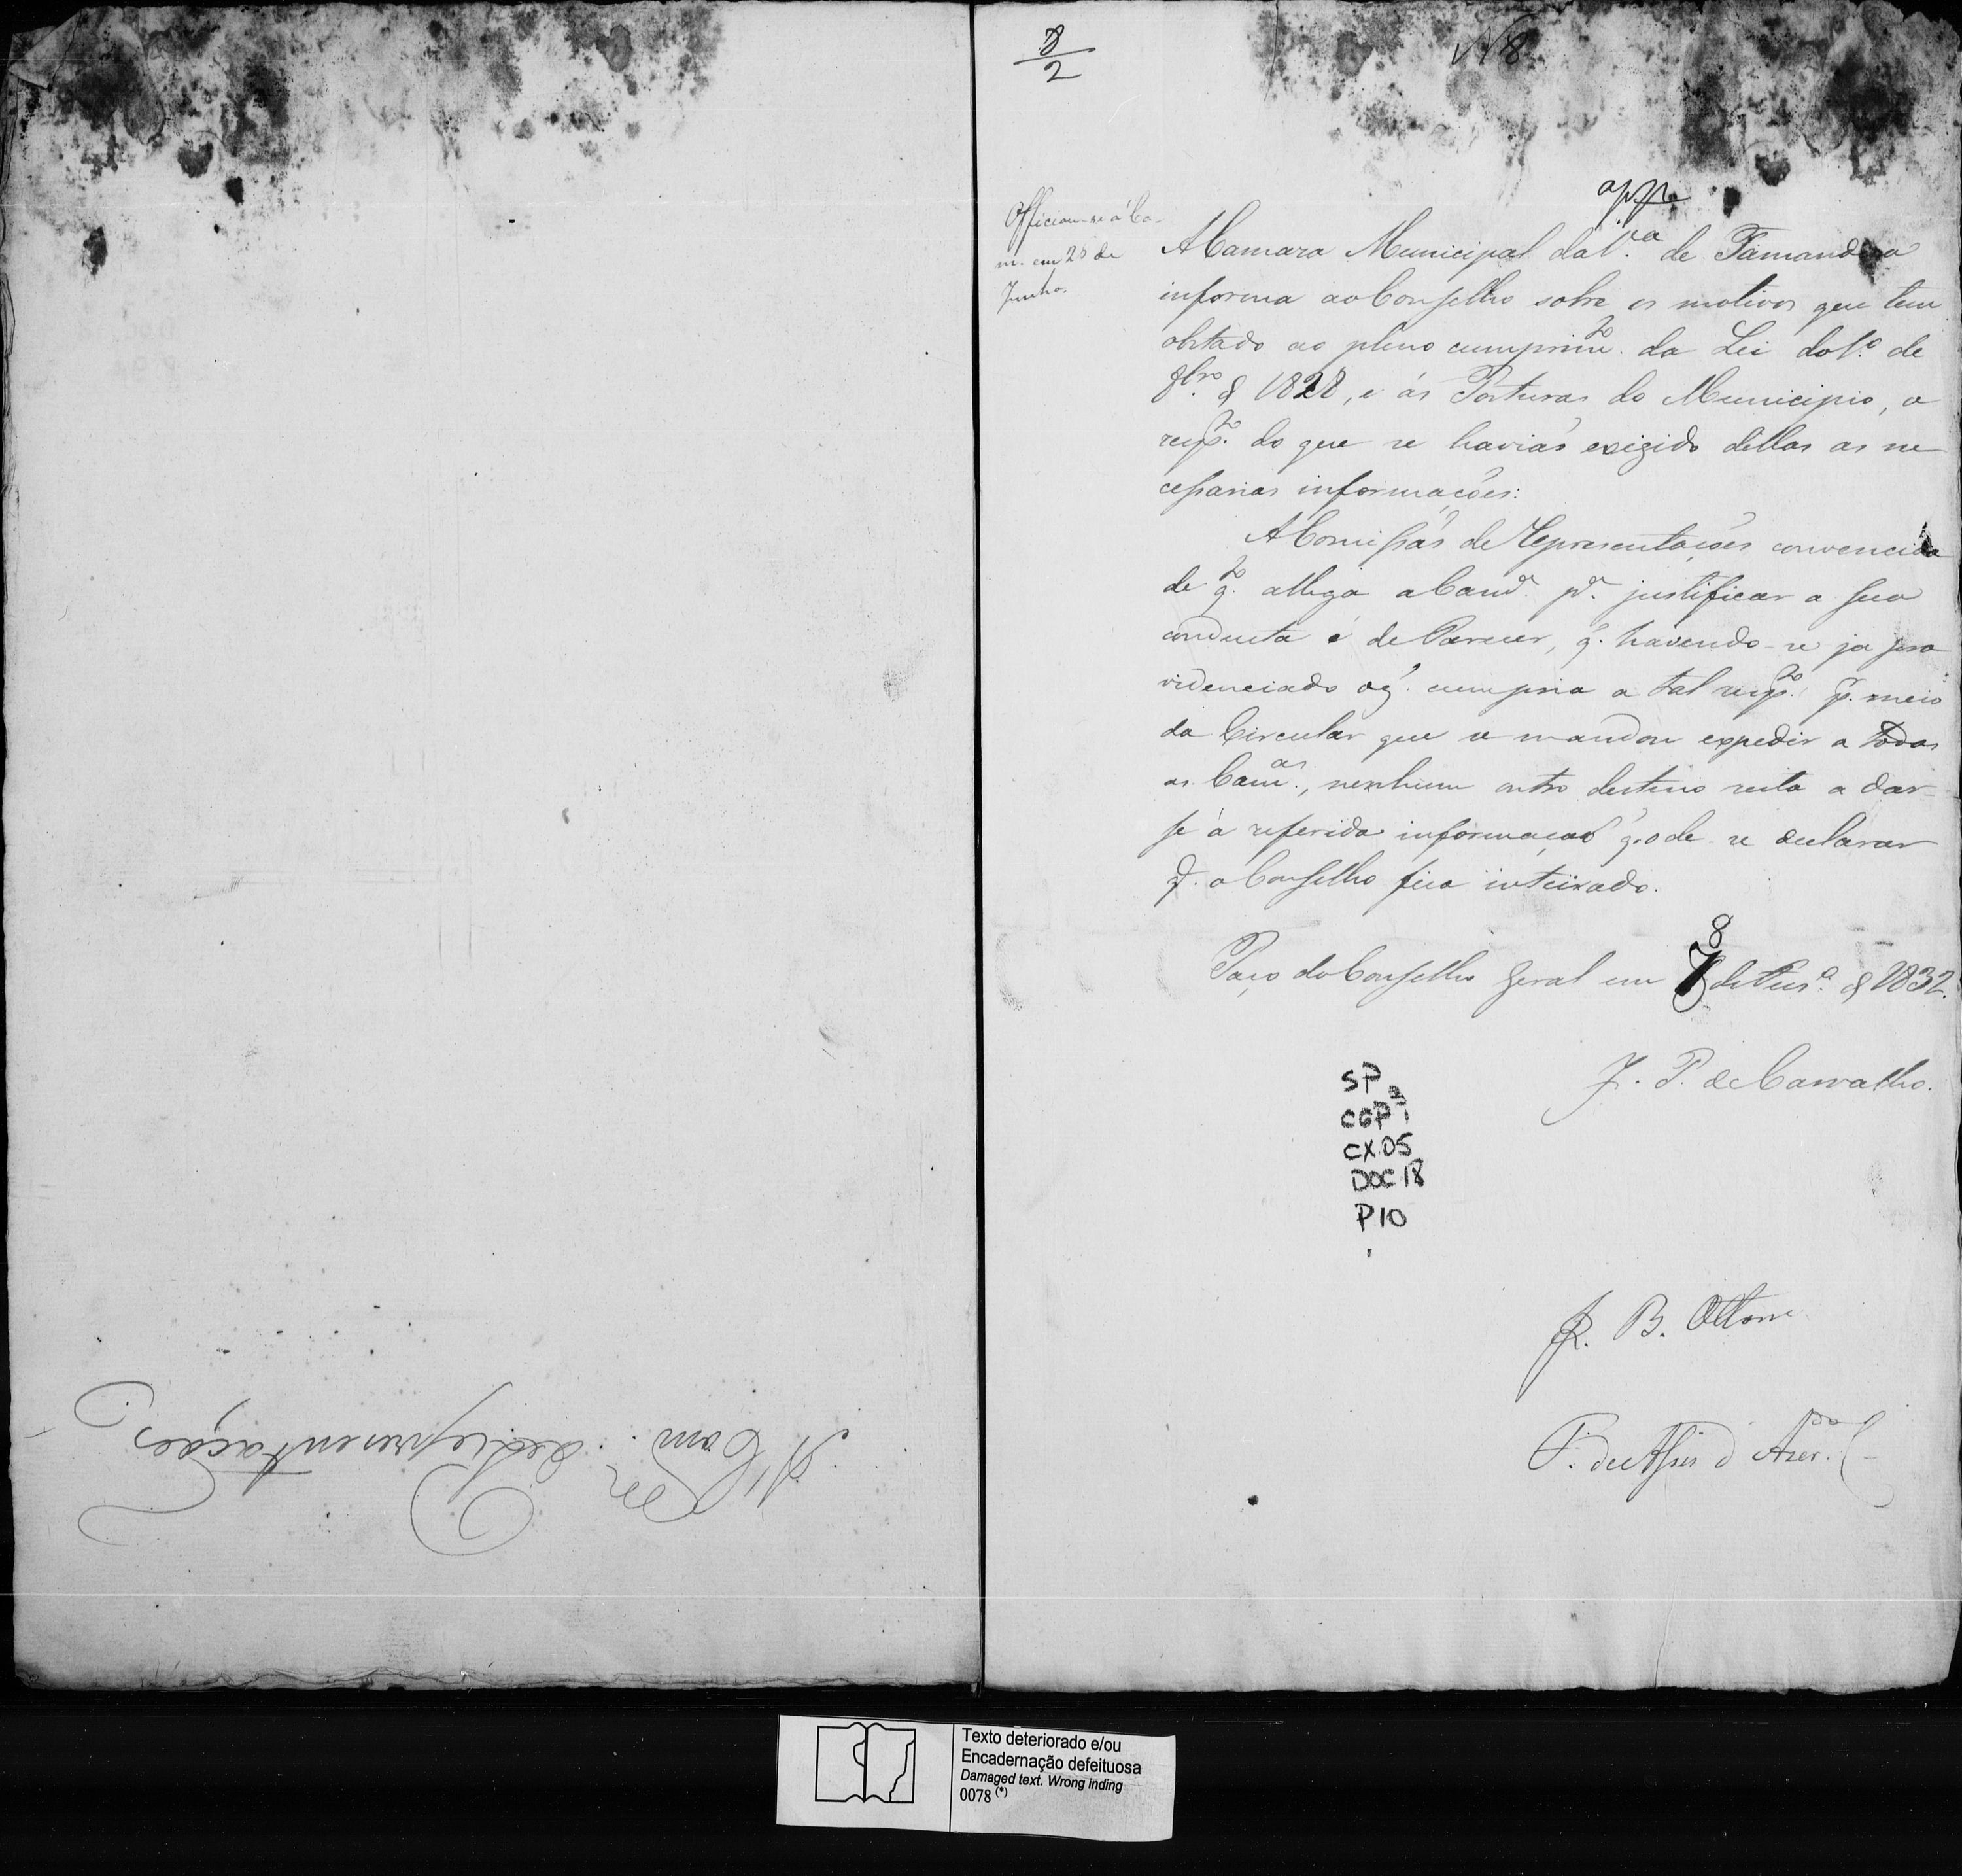 A Com.m de Representações
8
2
N 8
app.
Officiou-se á Ca-
m. em 25 de
Junho.
A Camara Municipal da V.a de Tamandua
informa ao Conselho sobre os motivos que tem
obstado ao pleno cumprim.to da Lei do 1.o de
8bro. de 1828, e ás Posturas do Municipio, a
resp.to do que se havião exigido dellas as ne
cessarias informações:
A Comissão de Representações convencida
do q. allega a Cam.a p.a justificar a sua
conducta é de Parecer, q. havendo-se ja pro
videnciado o q. cumpria a tal resp.to p.r meio
da Circular que se mandou expedir a todas
as Cam.as, nenhum outro destino resta a dar-
se á referida informação q. o de se declarar
q. o Conselho fica inteirado.
Paço do Conselho Geral em 8 de 1832.
J. P. de Carvalho.
SP
CGP 1
CX.05
DOC 18
P10
J. B. Ottoni
F. de Assis d' Azer.do C
Texto deteriorado e/ou
Encadernação defeituosa
Damaged text. Wrong inding
0078 (*)